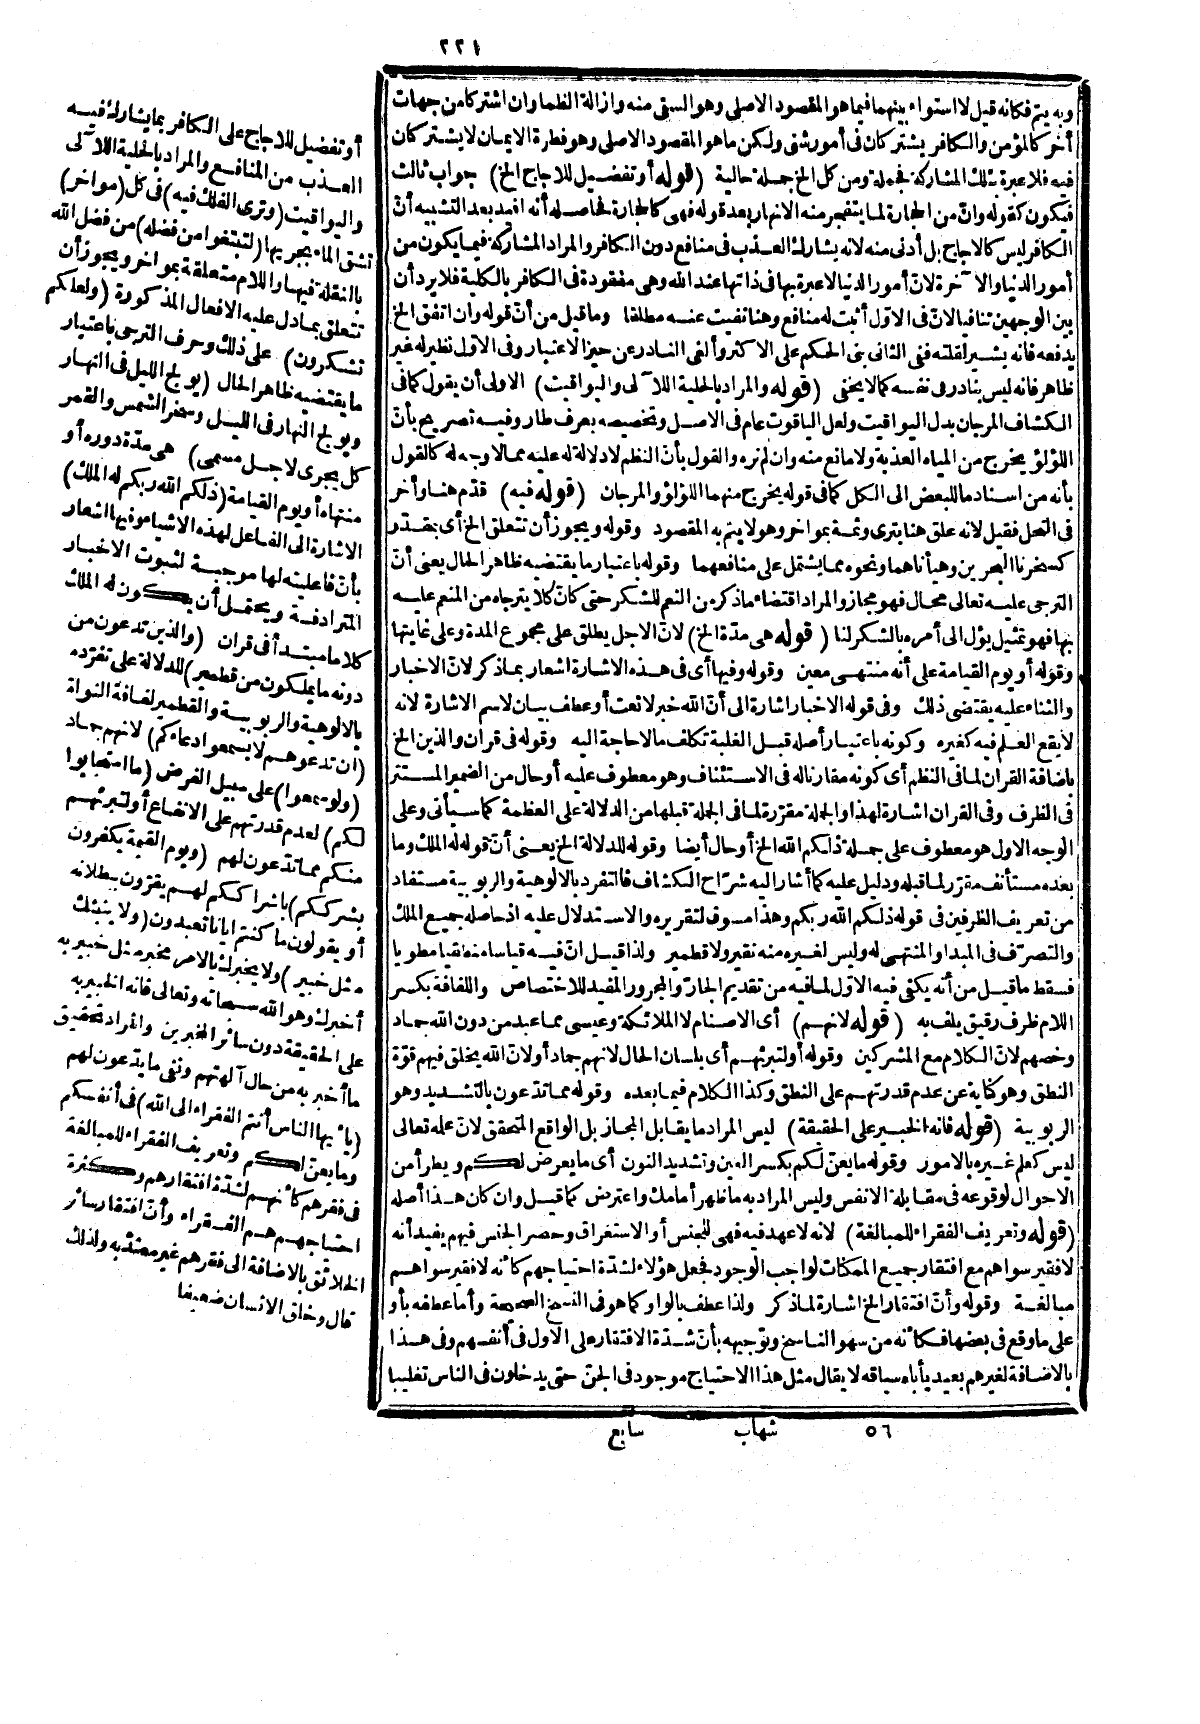 ٢٢١
وبه يتم فكأنه قيل لا استواء بينهما فيما هو المقصود الاصلي وهو السقي منه وازالة الظما وان اشتركا من جهات
أخر كالمؤمن والكافر يشتركان في أمور شتى ولكن ما هو المقصود الاصلي وهو فطرة الايمان لا يشتركان
فيه فلا عبرة بتلك المشاركة فجملة ومن كل الخ جملة حالية (قوله أو تفضيل للاجاج الخ) جواب ثالث
فيكون كقوله وانّ من الحجارة لما يتفجر منه الانهار بعد قوله فهي كالحجارة فحاصله أنه افيد بعد التشبيه أنّ
الكافر ليس كالاجاج بل أدنى منه لانه يشارك العذب في منافع دون الكافر والمراد المشاركة فيما يكون من
أمور الدنيا والآخرة لانّ أمور الدنيا لا عبرة بها في ذاتها عند الله وهي مفقودة في الكافر بالكلية فلا يرد أن
بين الوجهين تنافيا لانّ في الاوّل أثبت له منافع وهنا نفيت عنه مطلقا وما قيل من أنّ قوله وان اتفق الخ
يدفعه فانه يشير لقلته ففي الثاني بنى الحكم على الاكثر وألغى النادر عن حيز الاعتبار وفي الاول نظير له غير
ظاهر فانه ليس بنادر في نفسه كما لا يخفى (قوله والمراد بالحلية اللآلى واليواقيت) الاولى أن يقول كما في
الكشاف المرجان بدل اليواقيت ولعل الياقوت عام في الاصل وتخصيصه بعرف طار وفيه تصريح بأنّ
اللؤلؤ يخرج من المياه العذبة ولا مانع منه وان لم نره والقول بأنّ النظم لا دلالة له عليه مما لا وجه له كالقول
بأنه من اسناد ما للبعض الى الكل كما في قوله يخرج منهما اللؤلؤ والمرجان (قوله فيه) قدّم هنا وأخر
في النحل فقيل لانه علق هنا بترى وثمة بمواخر وهو لا يتم به المقصود وقوله ويجوز أن تتعلق الخ أي بمقدّر
كسخرنا البحرين وهيأناهما ونحوه مما يشتمل على منافعهما وقوله باعتبار ما يقتضيه ظاهر الحال يعني أنّ
الترجي عليه تعالى محال فهو مجاز والمراد اقتضاء ما ذكر من النعم للشكر حتى كأنّ كلا يترجاه من المنعم عليه
بها فهو تمثيل يؤل الى أمره بالشكر لنا (قوله هي مدّة الخ) لانّ الاجل يطلق على مجموع المدة وعلى غايتها
وقوله أو يوم القيامة على أنه منتهى معين وقوله وفيها أي في هذه الاشارة اشعار بما ذكر لانّ الاخبار
والثناء عليه يقتضي ذلك وفي قوله الاخبار اشارة الى أنّ الله خبر لا نعت أو عطف بيان لاسم الاشارة لانه
لا يقع العلم فيه كغيره وكونه باعتبار أصله قبل الغلبة تكلف ما لا حاجة اليه وقوله في قران والذين الخ
باضافة القران لما في النظم أي كونه مقارنا له في الاستئناف وهو معطوف عليه أو حال من الضمير المستتر
في الظرف وفي القران اشارة لهذا والجملة مقرّرة لما في الجملة قبلها من الدلالة على العظمة كما سيأتي وعلى
الوجه الاول هو معطوف على جملة ذلكم الله الخ أو حال أيضا وقوله للدلالة الخ يعني أنّ قوله له الملك وما
بعده مستأنف مقرّر لما قبله ودليل عليه كما أشار اليه شرّاح الكشاف فالتفرد بالالوهية والربوبية مستفاد
من تعريف الطرفين في قوله ذلكم الله ربكم وهذا مسوق لتقريره والاستدلال عليه اذ حاصله جميع الملك
والتصرّف في المبدا والمنتهى له وليس لغيره منه نقير ولا قطمير ولذا قيل انّ فيه قياسا منطقيا مطويا
فسقط ما قيل من أنه يكفي فيه الاوّل لما فيه من تقديم الجارّ والمجرور المفيد للاختصاص واللفافة بكسر
اللام ظرف رقيق يلف به (قوله لانهم) أي الاصنام لا الملائكة وعيسى مما عبد من دون الله جماد
وخصهم لانّ الكلام مع المشركين وقوله أو لتبرئهم أي بلسان الحال لانهم جماد أو لانّ الله يخلق فيهم قوّة
النطق وهو كناية عن عدم قدرتهم على النطق وكذا الكلام فيما بعده وقوله مما تدّعون بالتشديد وهو
الربوبية (قوله فانه الخبير على الحقيقة) ليس المراد ما يقابل المجاز بل الواقع المتحقق لانّ علمه تعالى
ليس كعلم غيره بالامور وقوله ما يعنّ لكم بكسر العين وتشديد النون أي ما يعرض لكم ويطرأ من
الاحوال لوقوعه في مقابلة الانفس وليس المراد به ما ظهر أمامك واعترض كما قيل وان كان هذا أصله
(قوله وتعريف الفقراء للمبالغة) لانه لا عهد فيه فهي للجنس أو الاستغراق وحصر الجنس فيهم يفيد أنه
لا فقير سواهم مع افتقار جميع الممكنات لواجب الوجود فجعل هؤلاء لشدّة احتياجهم كأنه لا فقير سواهم
مبالغة وقوله وأنّ افتقار الخ اشارة لما ذكر ولذا عطف بالواو كما هو في النسخ الصحيحة وأما عطفه بأو
على ما وقع في بعضها فكأنه من سهو الناسخ وتوجيهه بأنّ شدّة الافتقار على الاول في أنفسهم وفي هذا
بالاضافة لغيرهم بعيد يأباه سياقه لا يقال مثل هذا الاحتياج موجود في الجنّ حتى يدخلون في الناس تغليبا
أو تفضيل للاجاج على الكافر بما يشارك فيه
العذب من المنافع والمراد بالحلية اللآلى
واليواقيت (وترى الفلك فيه) في كل (مواخر)
تشق الماء بجريها (لتبتغوا من فضله) من فضل الله
بالنقلة فيها واللام متعلقة بمواخر ويجوز أن
تتعلق بما دل عليه الافعال المذكورة (ولعلكم
تشكرون) على ذلك وحرف الترجي باعتبار
ما يقتضيه ظاهر الحال (يولج الليل في النهار
ويولج النهار في الليل وسخر الشمس والقمر
كل يجري لاجل مسمى) هي مدّة دوره أو
منتهاه أو يوم القيامة (ذلكم الله ربكم له الملك)
الاشارة الى الفاعل لهذه الاشياء وفيها اشعار
بأنّ فاعليته لها موجبة لثبوت الاخبار
المترادفة ويحتمل أن يكون له الملك
كلاما مبتدأ في قران (والذين تدعون من
دونه ما يملكون من قطمير) للدلالة على تفرّده
بالالوهية والربوبية والقطمير لفافة النواة
(ان تدعوهم لا يسمعوا دعاءكم) لانهم جماد
(ولو سمعوا) على سبيل الفرض (ما استجابوا
لكم) لعدم قدرتهم على الانفاع أو لتبرئهم
منكم مما تدّعون لهم (ويوم القيمة يكفرون
بشرككم) باشراككم لهم يقرّون ببطلانه
أو يقولون ما كنتم ايانا تعبدون (ولا ينبئك
مثل خبير) ولا يخبرك بالامر مخبر مثل خبير به
أخبرك وهو الله سبحانه وتعالى فانه الخبير به
على الحقيقة دون سائر المخبرين والمراد تحقيق
ما أخبر به من حال آلهتهم ونفي ما يدّعون لهم
(يا أيها الناس أنتم الفقراء الى الله) في أنفسكم
وما يعنّ لكم وتعريف الفقراء للمبالغة
في فقرهم كأنهم لشدّة افتقارهم وكثرة
احتياجهم هم الفقراء وأنّ افتقار سائر
الخلائق بالاضافة الى فقرهم غير معتدّ به ولذلك
قال وخلق الانسان ضعيفا
٥٦ شهاب سابع